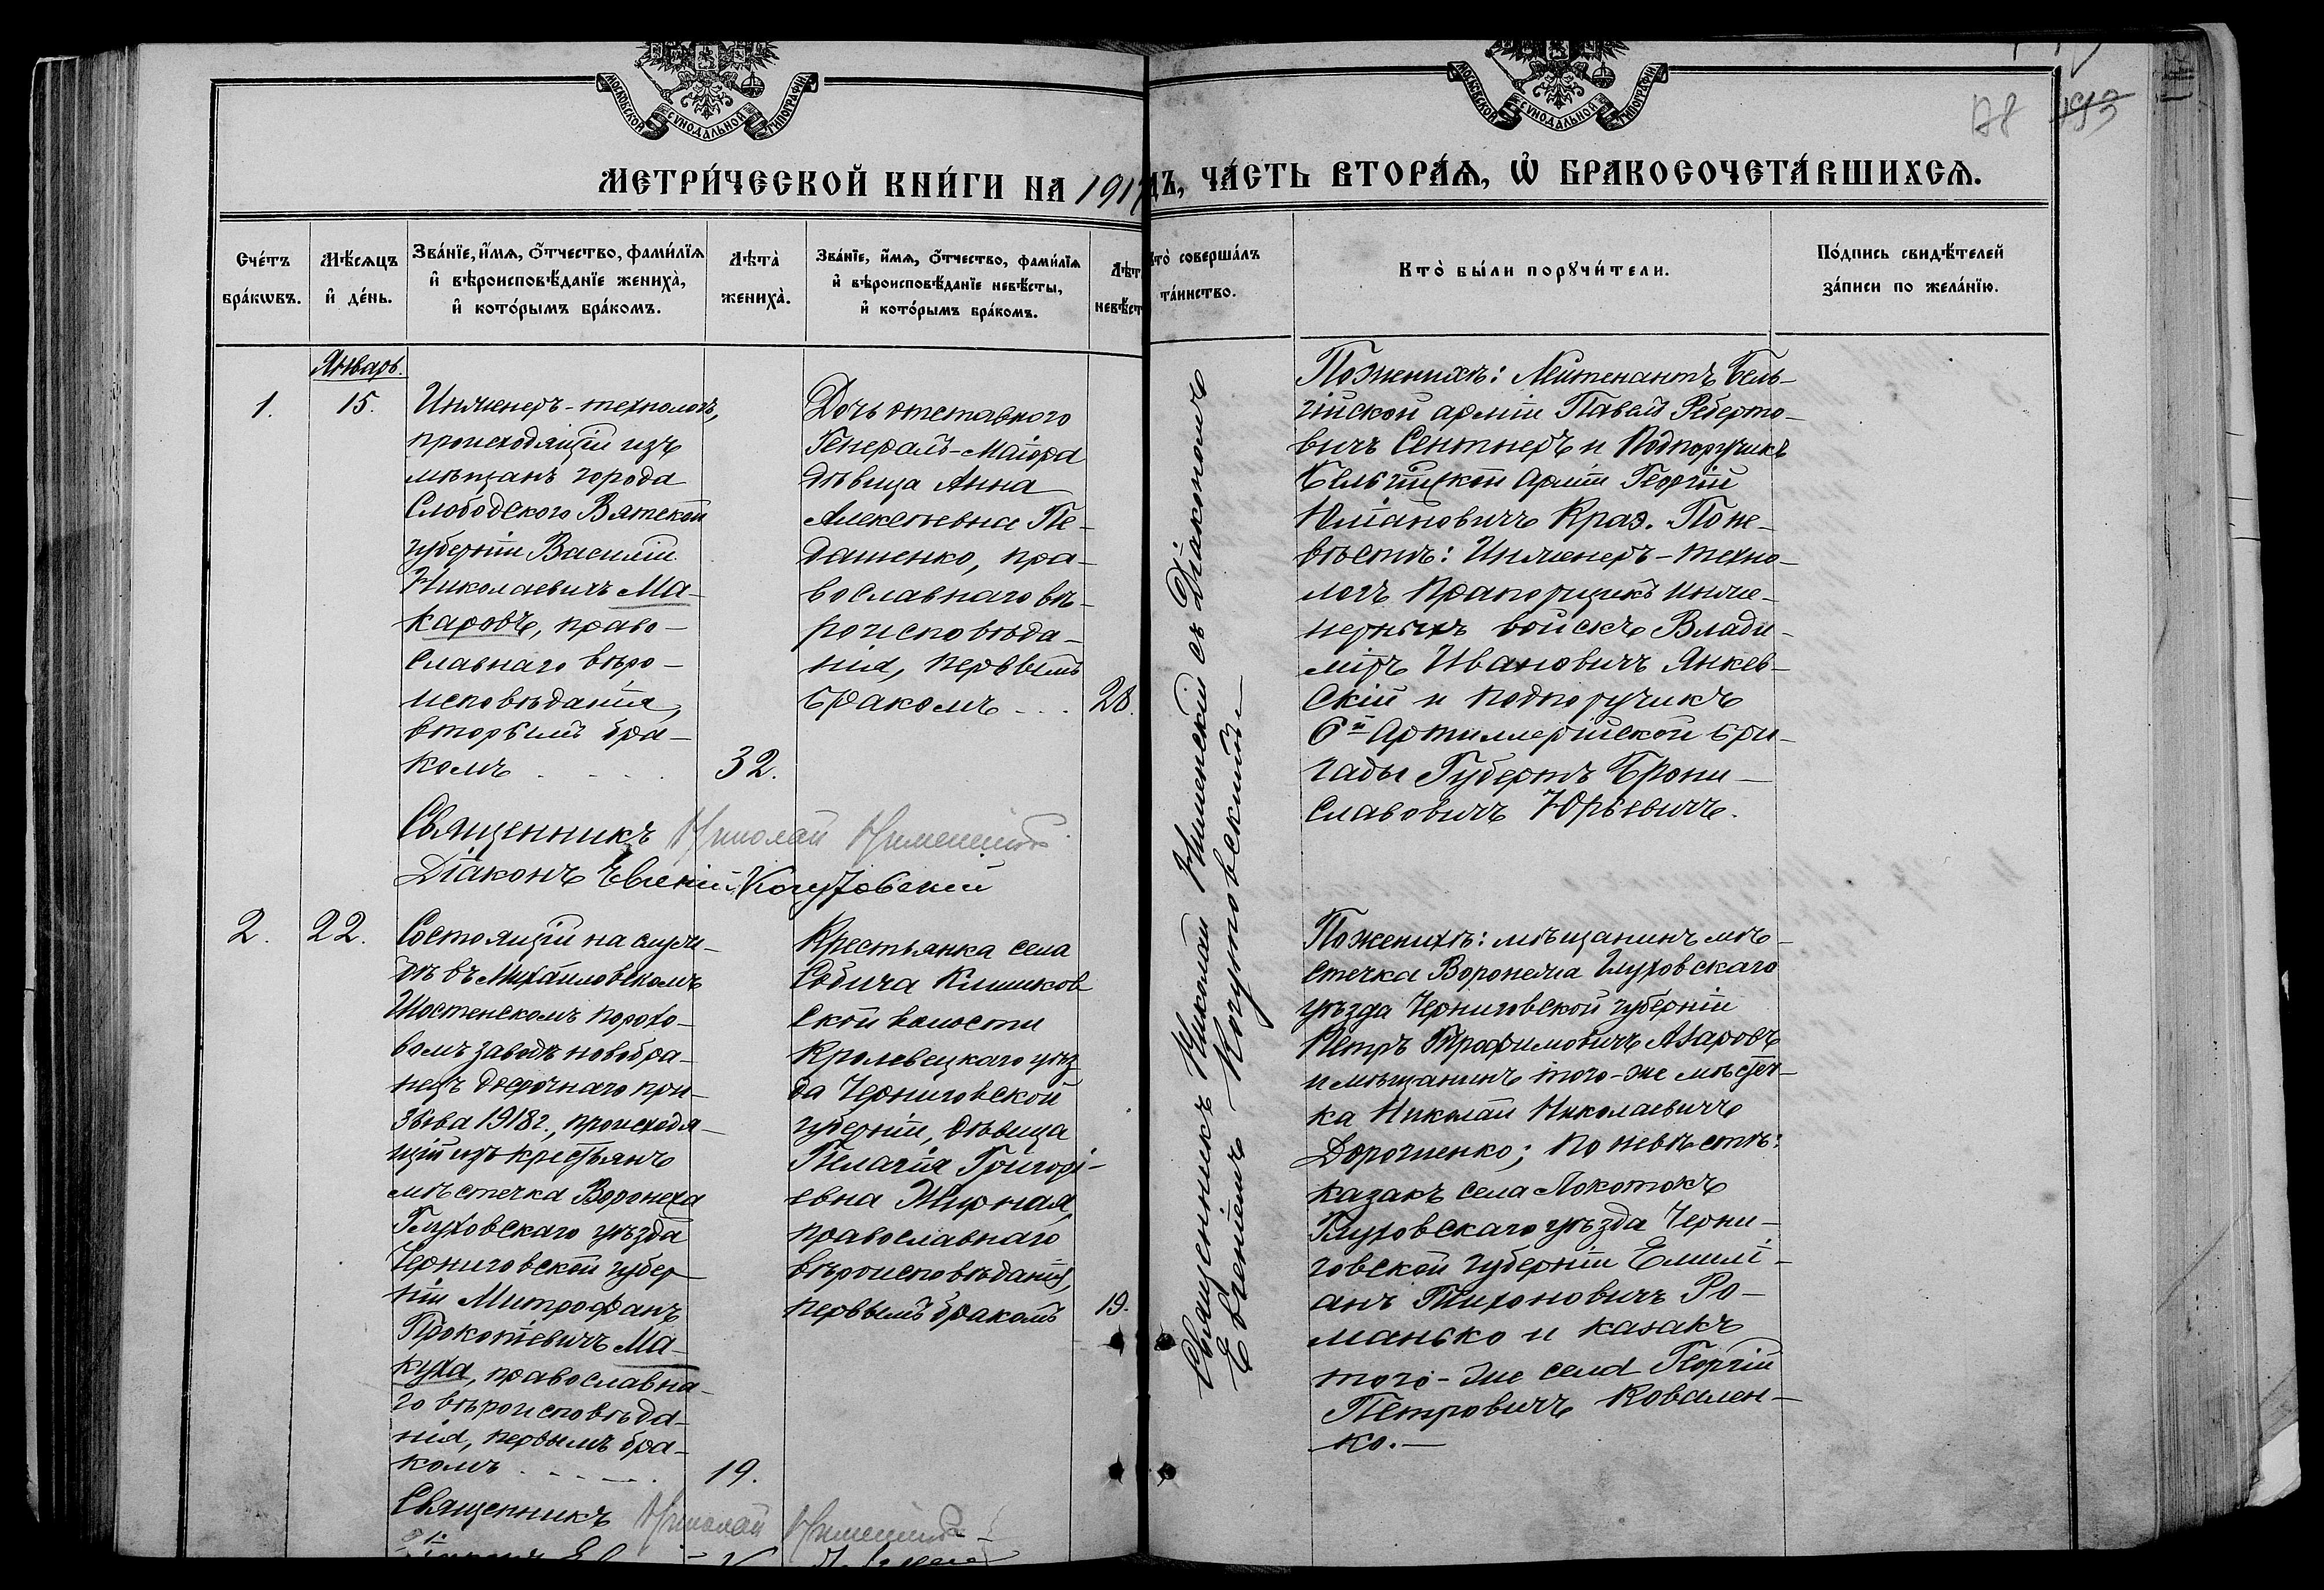 МОСКОВСКОЙ СУНОДАЛЬНОЙ ТИПОГРАФІИ
МОСКОВСКОЙ СУНОДАЛЬНОЙ ТИПОГРАФІИ
178 193
МЕТРИ́ЧЕСКОЙ КНИ́ГИ НА 1917
ДЪ, ЧА́СТЬ ВТОРА́Ѧ, Ѽ БРАКОСОЧЕТА́ВШИХСѦ.
Сче́тъ
бра́кѡвъ.
Мѣ́сѧцъ
и҆ де́нь.
Зва́нїе, и҆́мѧ, ѻ҆́тчество, фами́лїѧ
и҆ вѣроисповѣ́данїе жениха̀,
и҆ кото́рымъ бра́комъ.
Лѣта̀
жениха̀.
Зва́нїе, и҆́мѧ, ѻ҆́тчество, фами́лїѧ
и҆ вѣроисповѣ́данїе невѣ́сты,
и҆ кото́рымъ бра́комъ.
Лѣт
невѣ́ст
то̀ соверша́лъ
та́инство.
Кто̀ бы́ли порꙋчи́тели.
По́дпись свидѣ́телей
за́писи по жела́нїю.
Январь.
1.
15.
Инженеръ-технологъ,
происходящій изъ
мѣщанъ города
Слободского Вятской
губерніи Василій
Николаевичъ Ма-
каровъ, право-
славнаго вѣро-
исповѣданія,
вторымъ бра-
комъ . - . - .
32.
Дочь отставного
Генералъ-Маіора
дѣвица Анна
Алексѣевна Пе-
дашенко, пра-
вославнаго вѣ-
роисповѣда-
нія, первымъ
бракомъ - . .
28.
Священникъ Николай
Діаконъ Евгеній
Священникъ Николай съ Діакономъ
Евгеніемъ
По женихѣ: Лейтенантъ Бель-
гійской арміи Павелъ Роберто-
вичъ Сентнеръ и Подпоручикъ
Бельгійской Арміи Георгій
Юліановичъ Краэ. По не-
вѣстѣ: Инженеръ-техно-
логъ Прапорщикъ инже-
нерныхъ войскъ Влади-
міръ Ивановичъ Янкев-
скій и подпоручикъ
6й Артиллерійской бри-
гады Губертъ Брони-
славовичъ Юрьевичъ.
2.
22.
Состоящій на служ-
бѣ въ Михайловскомъ
Шостенскомъ порохо-
вомъ заводѣ новобра-
нецъ досрочнаго при-
зыва 1918 г., происходя-
щій изъ крестьянъ
мѣстечка Воронежа
Глуховскаго уѣзда
Черниговской губер-
ніи Митрофанъ
Прокопіевичъ Ма-
куха, православна-
го вѣроисповѣда-
нія, первымъ бра-
комъ . - . - .
19.
Крестьянка села
Собича Клишков
ской волости
Кролевецкаго уѣз
да Черниговской
губерніи, дѣвица
Пелагія Григорі-
евна Жирная,
православнаго
вѣроисповѣданія,
первымъ бракомъ
19.
По женихѣ: мѣщанинъ мѣ-
стечка Воронежа Глуховскаго
уѣзда Черниговской губерніи
Петръ Трофимовичъ Азаровъ
и мѣщанинъ того-же мѣстеч-
ка Николай Николаевичъ
Дорошенко; по невѣстѣ:
казакъ села Локотокъ
Глуховскаго уѣзда Черни-
говской губерніи Емилі-
анъ Тихоновичъ Ро-
манько и казакъ
того-же села Георгій
Петровичъ Ковален-
ко.—
Священникъ Николай